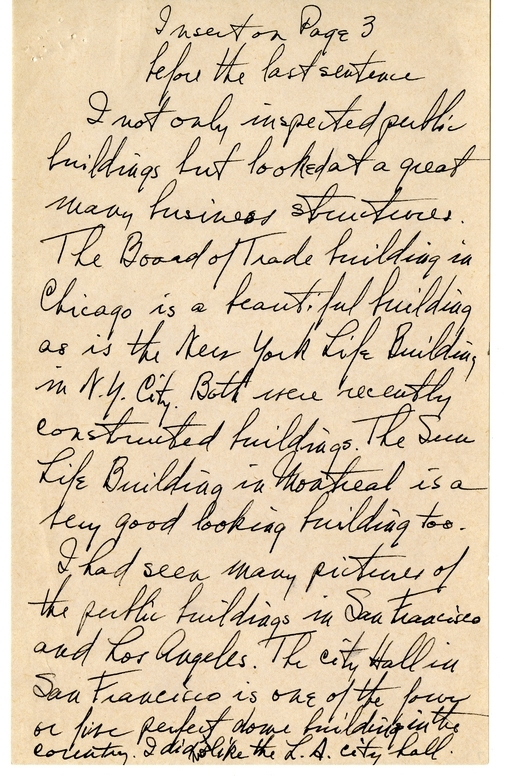 Insert on Page 3
before the last sentence
I not only inspected public
buildings but looked at a great
many business structures.
The Board of Trade building in
Chicago is a beautiful building
as is the New York Life Building
in N.Y. City. Both were recently
constructed buildings. The Sun
Life Building in Montreal is a
very good looking building too.
I had seen many pictures of
the public buildings in San Francisco
and Los Angeles. The city Hall in
San Francisco is one of the four
or five perfect dome buildings in the
country. I did not like the L.A. city hall.